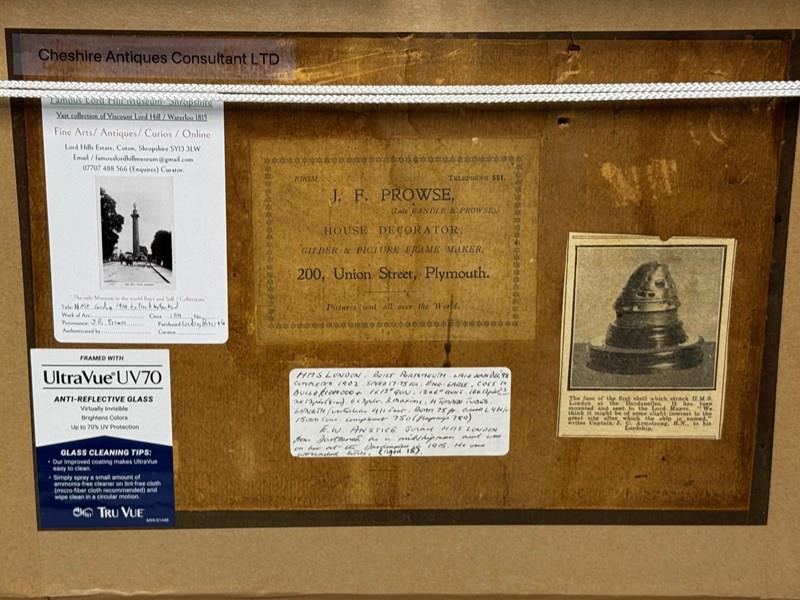 Cheshire Antiques Consultant LTD
Famous Lord Hill Museum- Shropshire
Vast collection of Viscount Lord Hill / Waterloo 1815
Fine Arts/ Antiques/ Curios / Online
Lord Hills Estate, Coton, Shropshire SY13 3LW
Email / famouslordhillmuseum@gmail.com
07707 488 566 (Enquires) Curator.
"The only Museum in the world Buys and Sell / Collections"
Title: HMS London
Work of Art: Circa No
Provenance: J.F. Prowse Purchased
Authenticated by Curator
FRAMED WITH
UltraVue® UV70
ANTI-REFLECTIVE GLASS
Virtually Invisible
Brightens Colors
Up to 70% UV Protection
GLASS CLEANING TIPS:
• Our improved coating makes UltraVue
easy to clean.
• Simply spray a small amount of
ammonia-free cleaner on lint-free cloth
(micro-fiber cloth recommended) and
wipe clean in a circular motion.
TRU VUE
TELEPHONE 551.
J. F. PROWSE,
(Late RANDLE & PROWSE),
HOUSE DECORATOR,
GILDER & PICTURE FRAME MAKER,
200, Union Street, Plymouth.
Pictures sent all over the World.
HMS LONDON. BUILT PORTSMOUTH. LAID DOWN DEC '98
COMPLETED 1902. SPEED ENG: EARLE. COST TO
BUILD
2 MAXIMS, 4 TORPEDO TUBES
LENGTH 411 feet. BEAM 75 ft.
15,000 Tons. Complement 750 (Flagship 789)
E.W. ANSTICE JOINED HMS LONDON
from Dartmouth as a midshipman and was
on her at the Dardanelles of 1915. He was
(aged 18)
The fuse of the first shell which struck H.M.S.
London at the Dardanelles. It has been
mounted and sent to the Lord Mayor. "We
think it might be of some slight interest to the
great city after which the ship is named,"
writes Captain J. G. Armstrong, R.N., to his
Lordship.